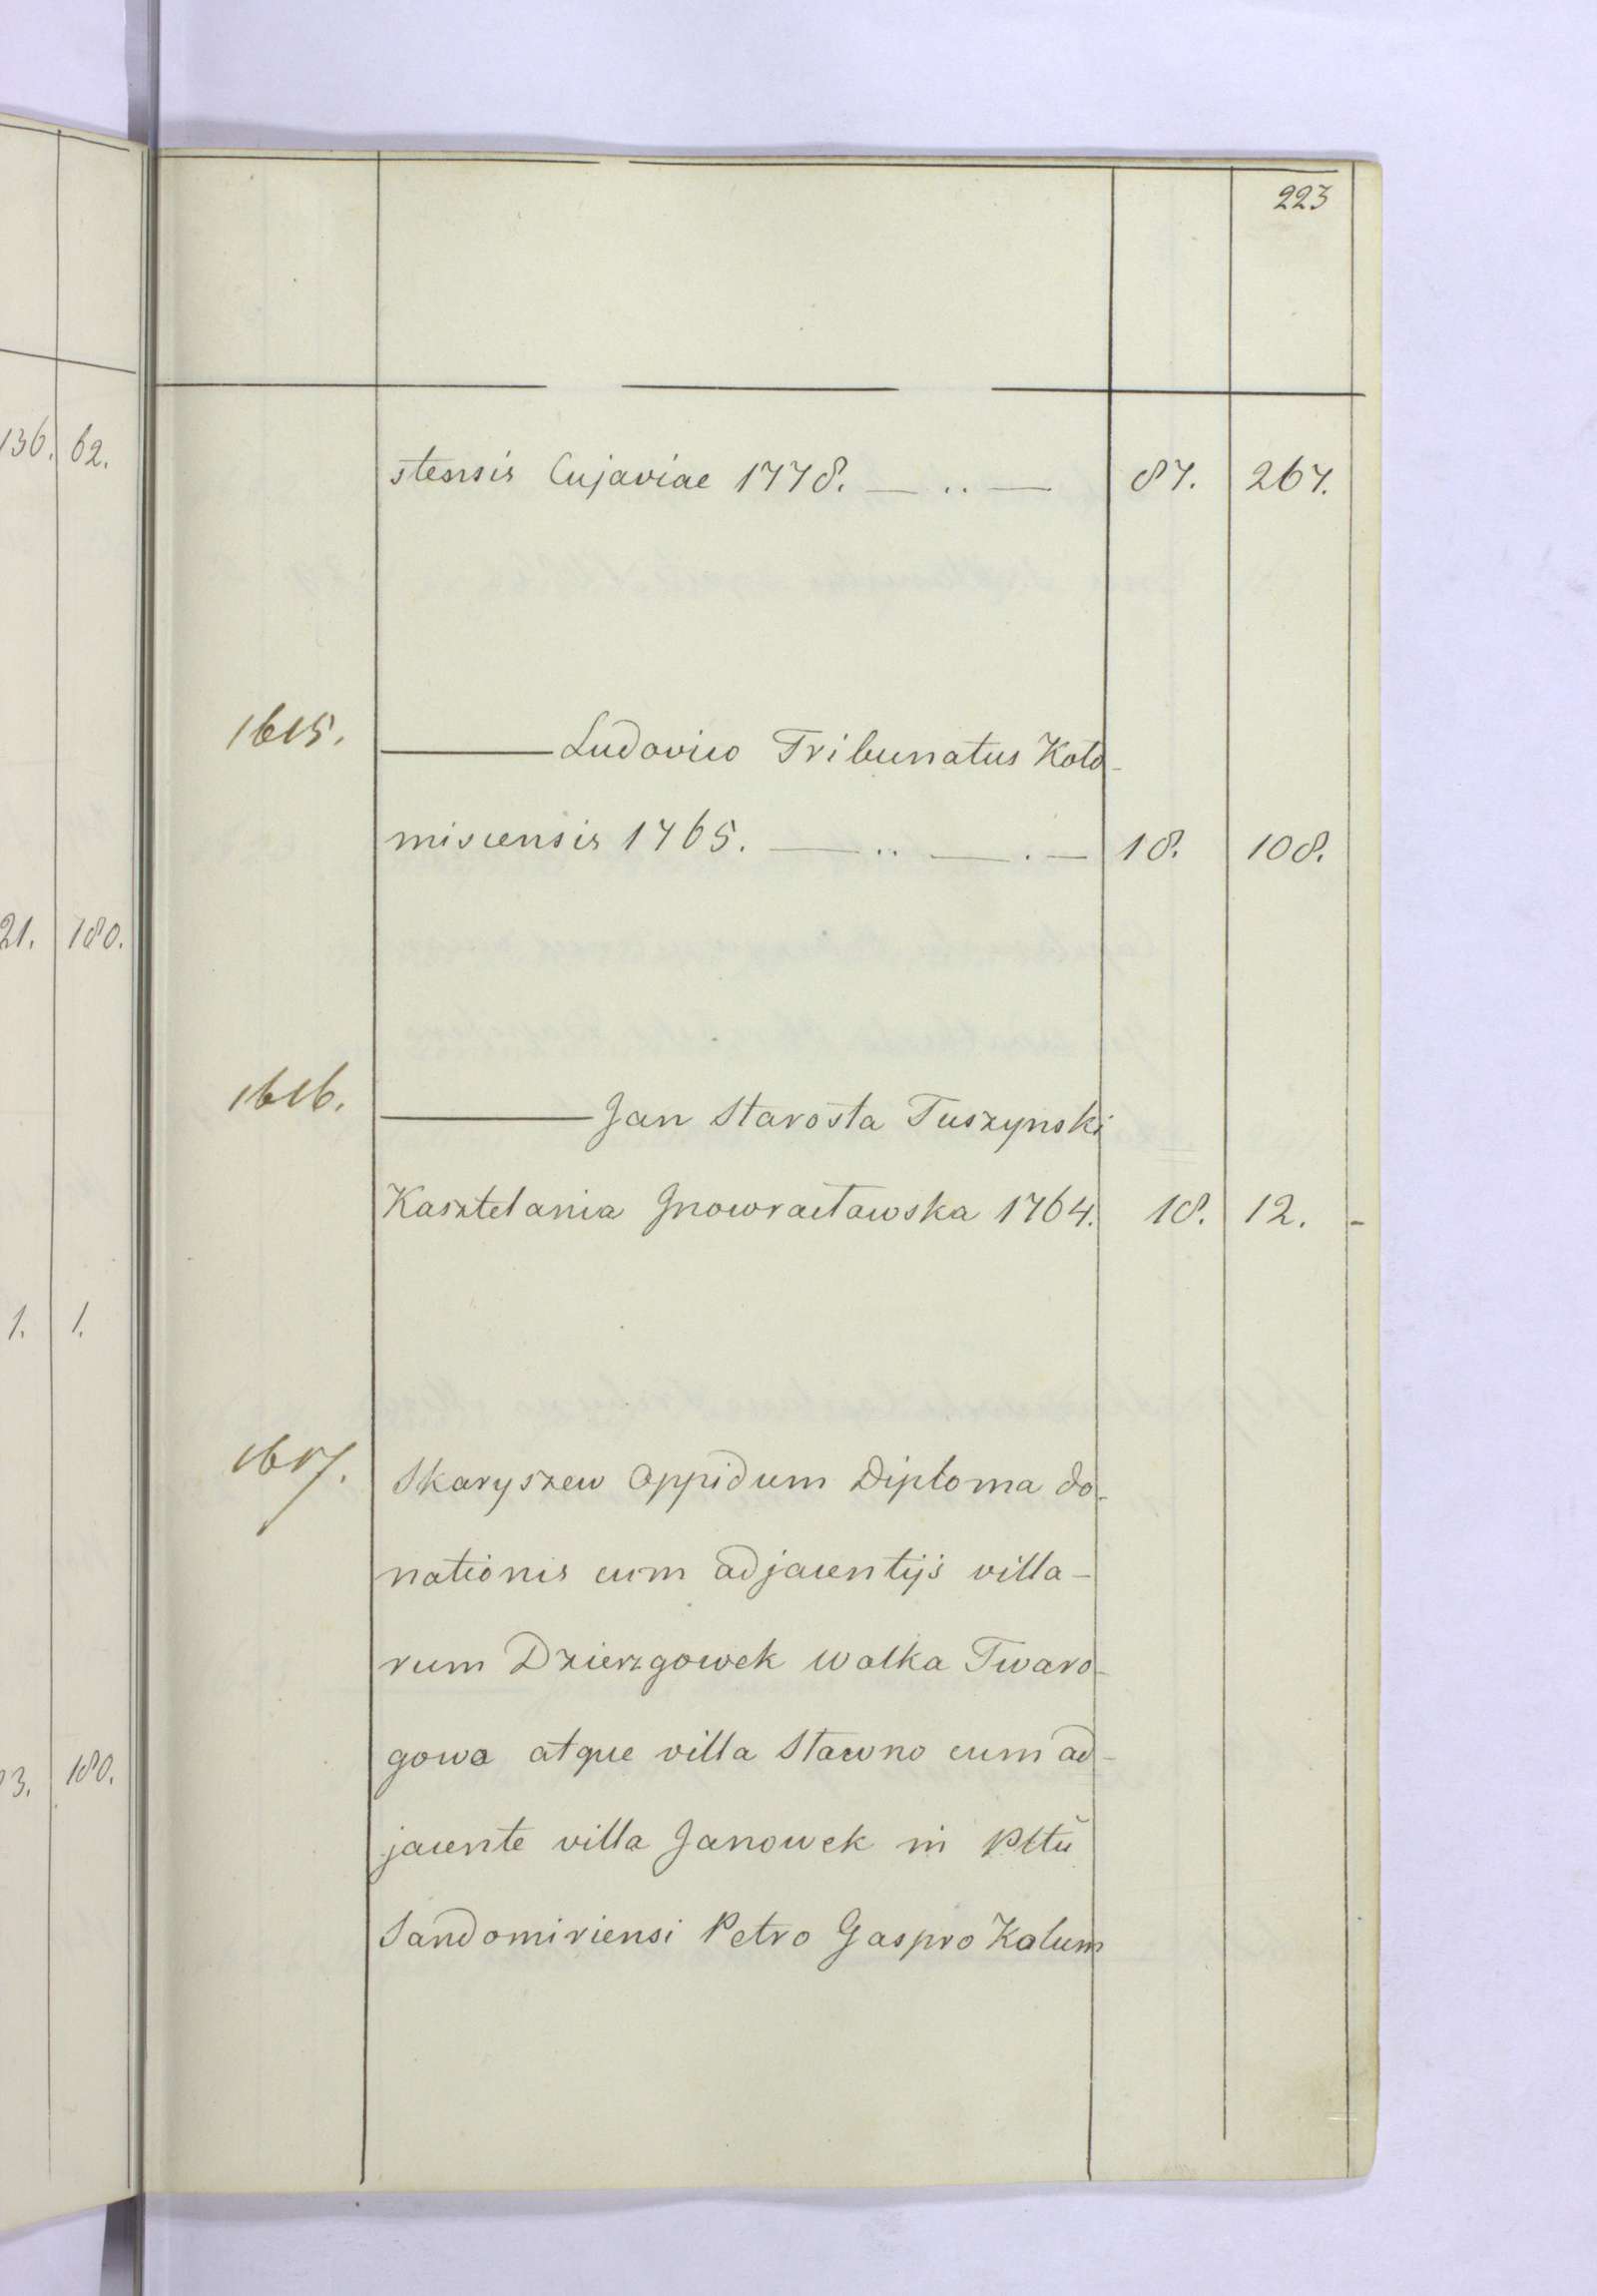 223
136. 62.
stensis Cujaviae 1778. — .. — 87. 267.
1615. ——— Ludovico Tribunatus Koło-
misciensis 1765. — .. — . — 18. 108.
21. 180.
1616. ——— Jan Starosta Tuszynski
Kasztelania Jnowracławska 1764. 18. 12. -
1. 1.
1617. Skaryszew Oppidum Diploma do-
nationis cum adjacentijs villa-
rum Dzierzgowek Wolka Twaro-
3. 180.
gowa atque villa Stawno cum ad-
jacente villa Janowek in Pltũ
Sandomiriensi Petro Gaspro Kalum